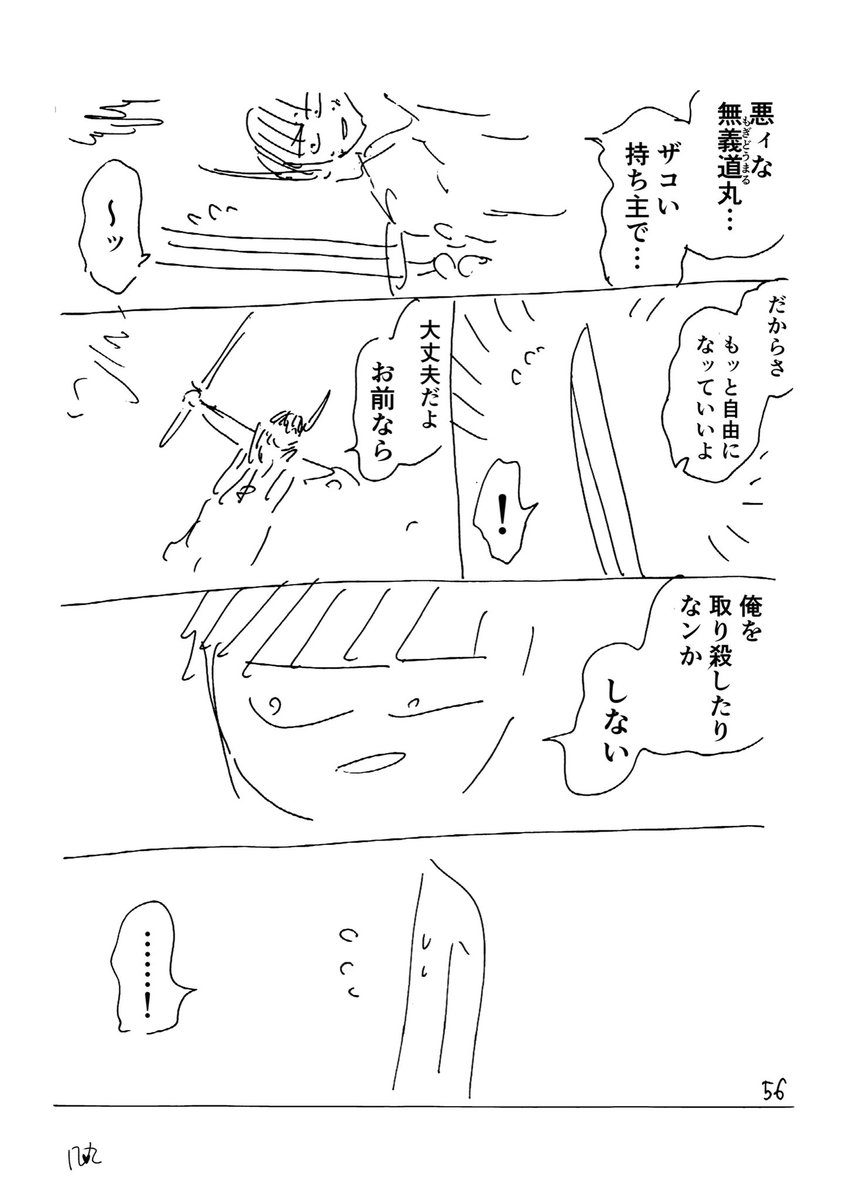 悪ィな
無義道丸…
もぎどうまる
ザコい
持ち主で…
～ッ
だからさ
もッと自由に
なッていいよ
！
大丈夫だよ
お前なら
俺を
取り殺したり
なンか
しない
………！
56